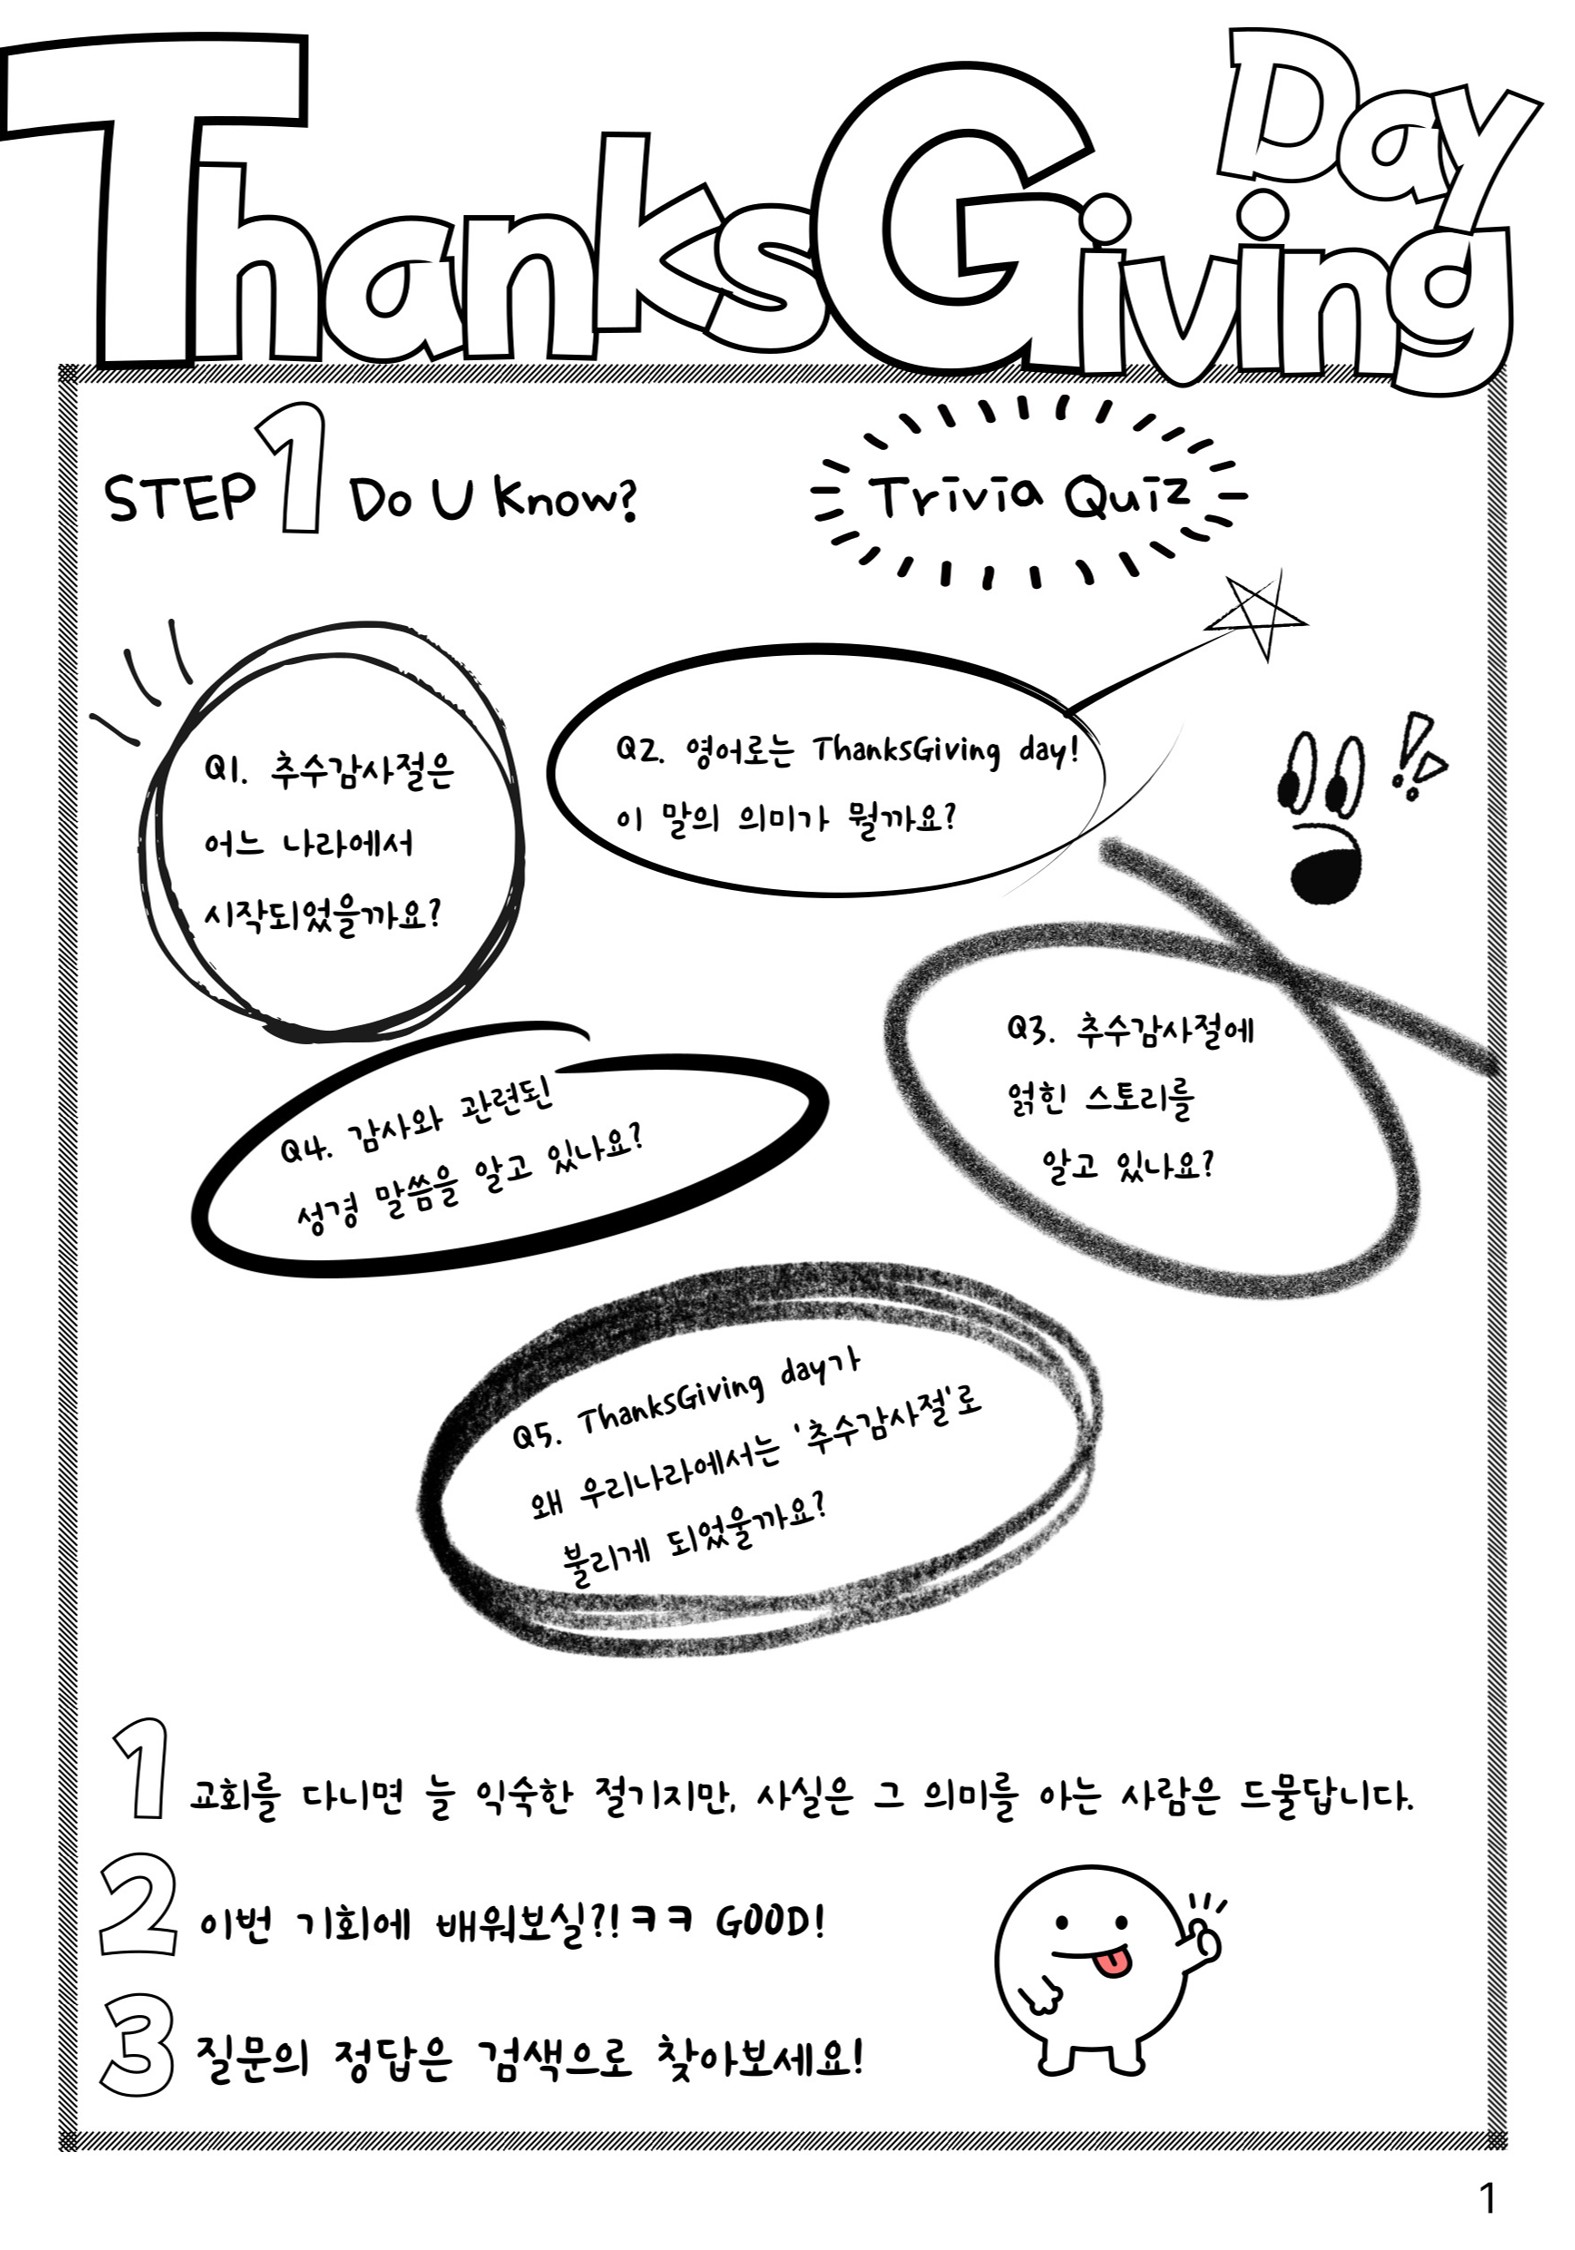 ThanksGiving Day
STEP 1 Do U Know?
Trivia Quiz
Q1. 추수감사절은
어느 나라에서
시작되었을까요?
Q2. 영어로는 ThanksGiving day!
이 말의 의미가 뭘까요?
Q3. 추수감사절에
얽힌 스토리를
알고 있나요?
Q4. 감사와 관련된
성경 말씀을 알고 있나요?
Q5. ThanksGiving day가
왜 우리나라에서는 '추수감사절'로
불리게 되었울까요?
1 교회를 다니면 늘 익숙한 절기지만, 사실은 그 의미를 아는 사람은 드물답니다.
2 이번 기회에 배워보실?!ㅋㅋ GOOD!
3 질문의 정답은 검색으로 찾아보세요!
1